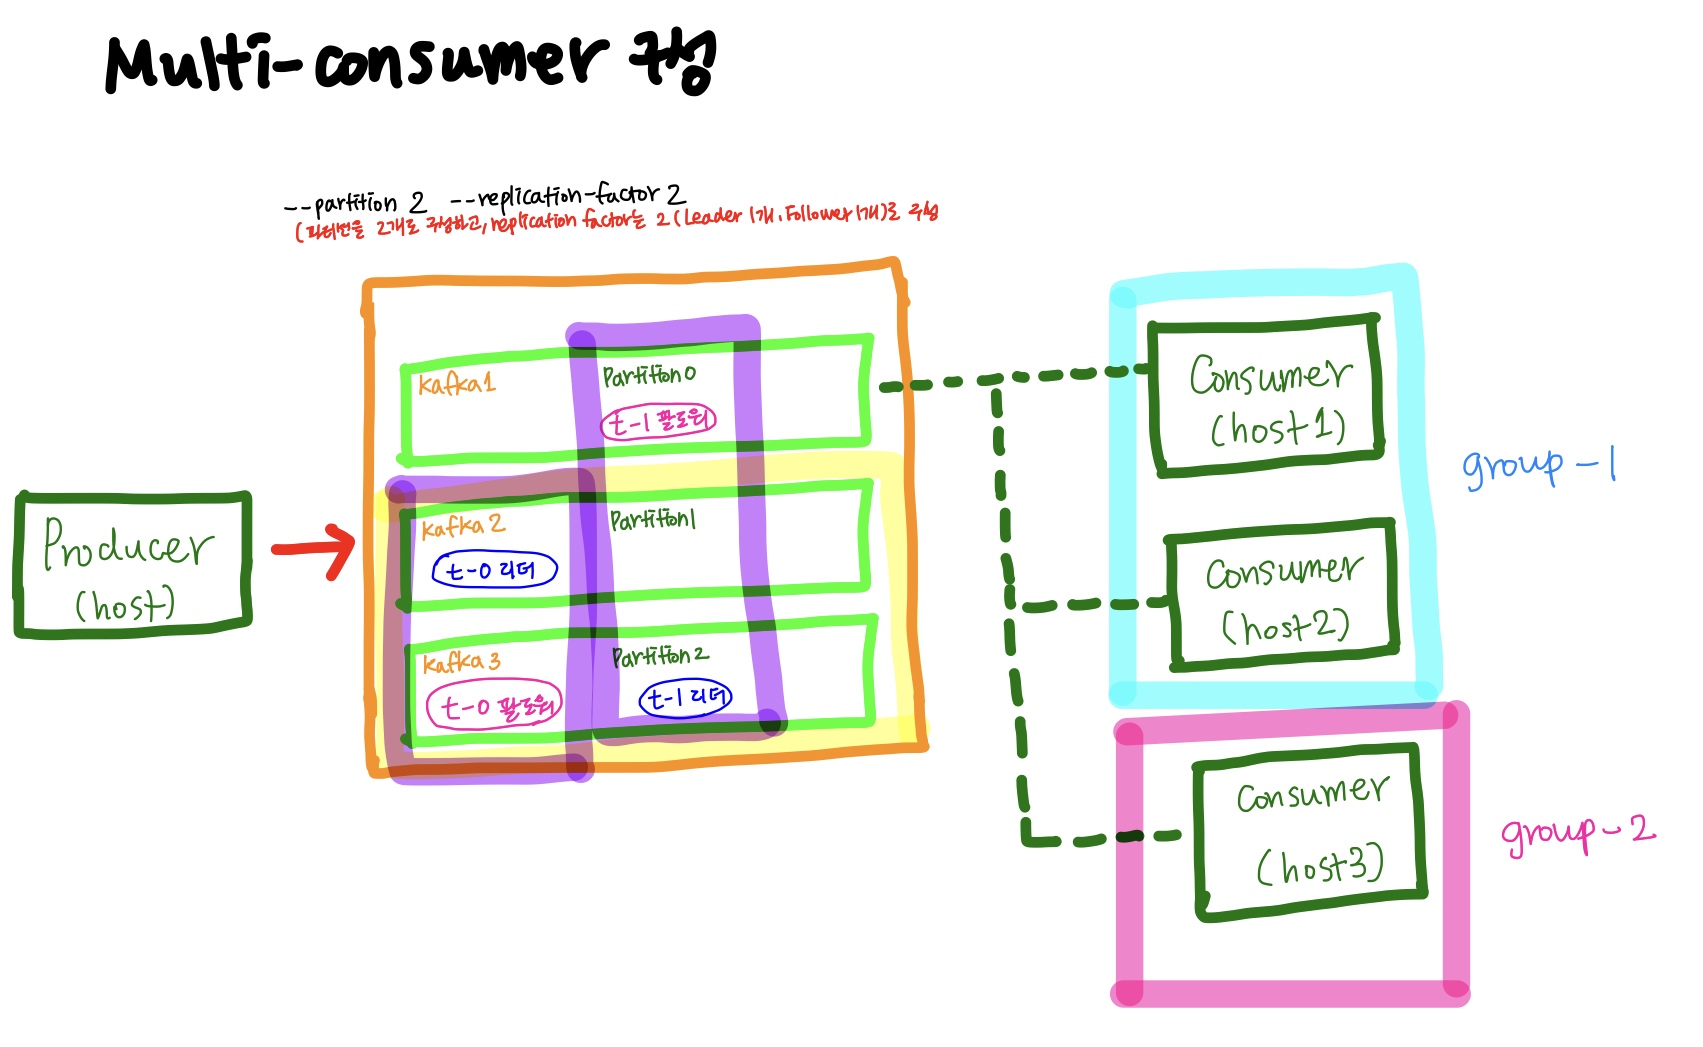 Multi-consumer 구성
--partition 2 --replication-factor 2
(파티션을 2개로 구성하고, replication factor는 2 (Leader 1개, Follower 1개)로 구성
kafka1
Partition0
t-1 팔로워
kafka 2
Partition1
t-0 리더
kafka 3
Partition 2
t-0 팔로워
t-1 리더
Producer
(host)
Consumer
(host1)
Consumer
(host2)
group-1
Consumer
(host3)
group-2